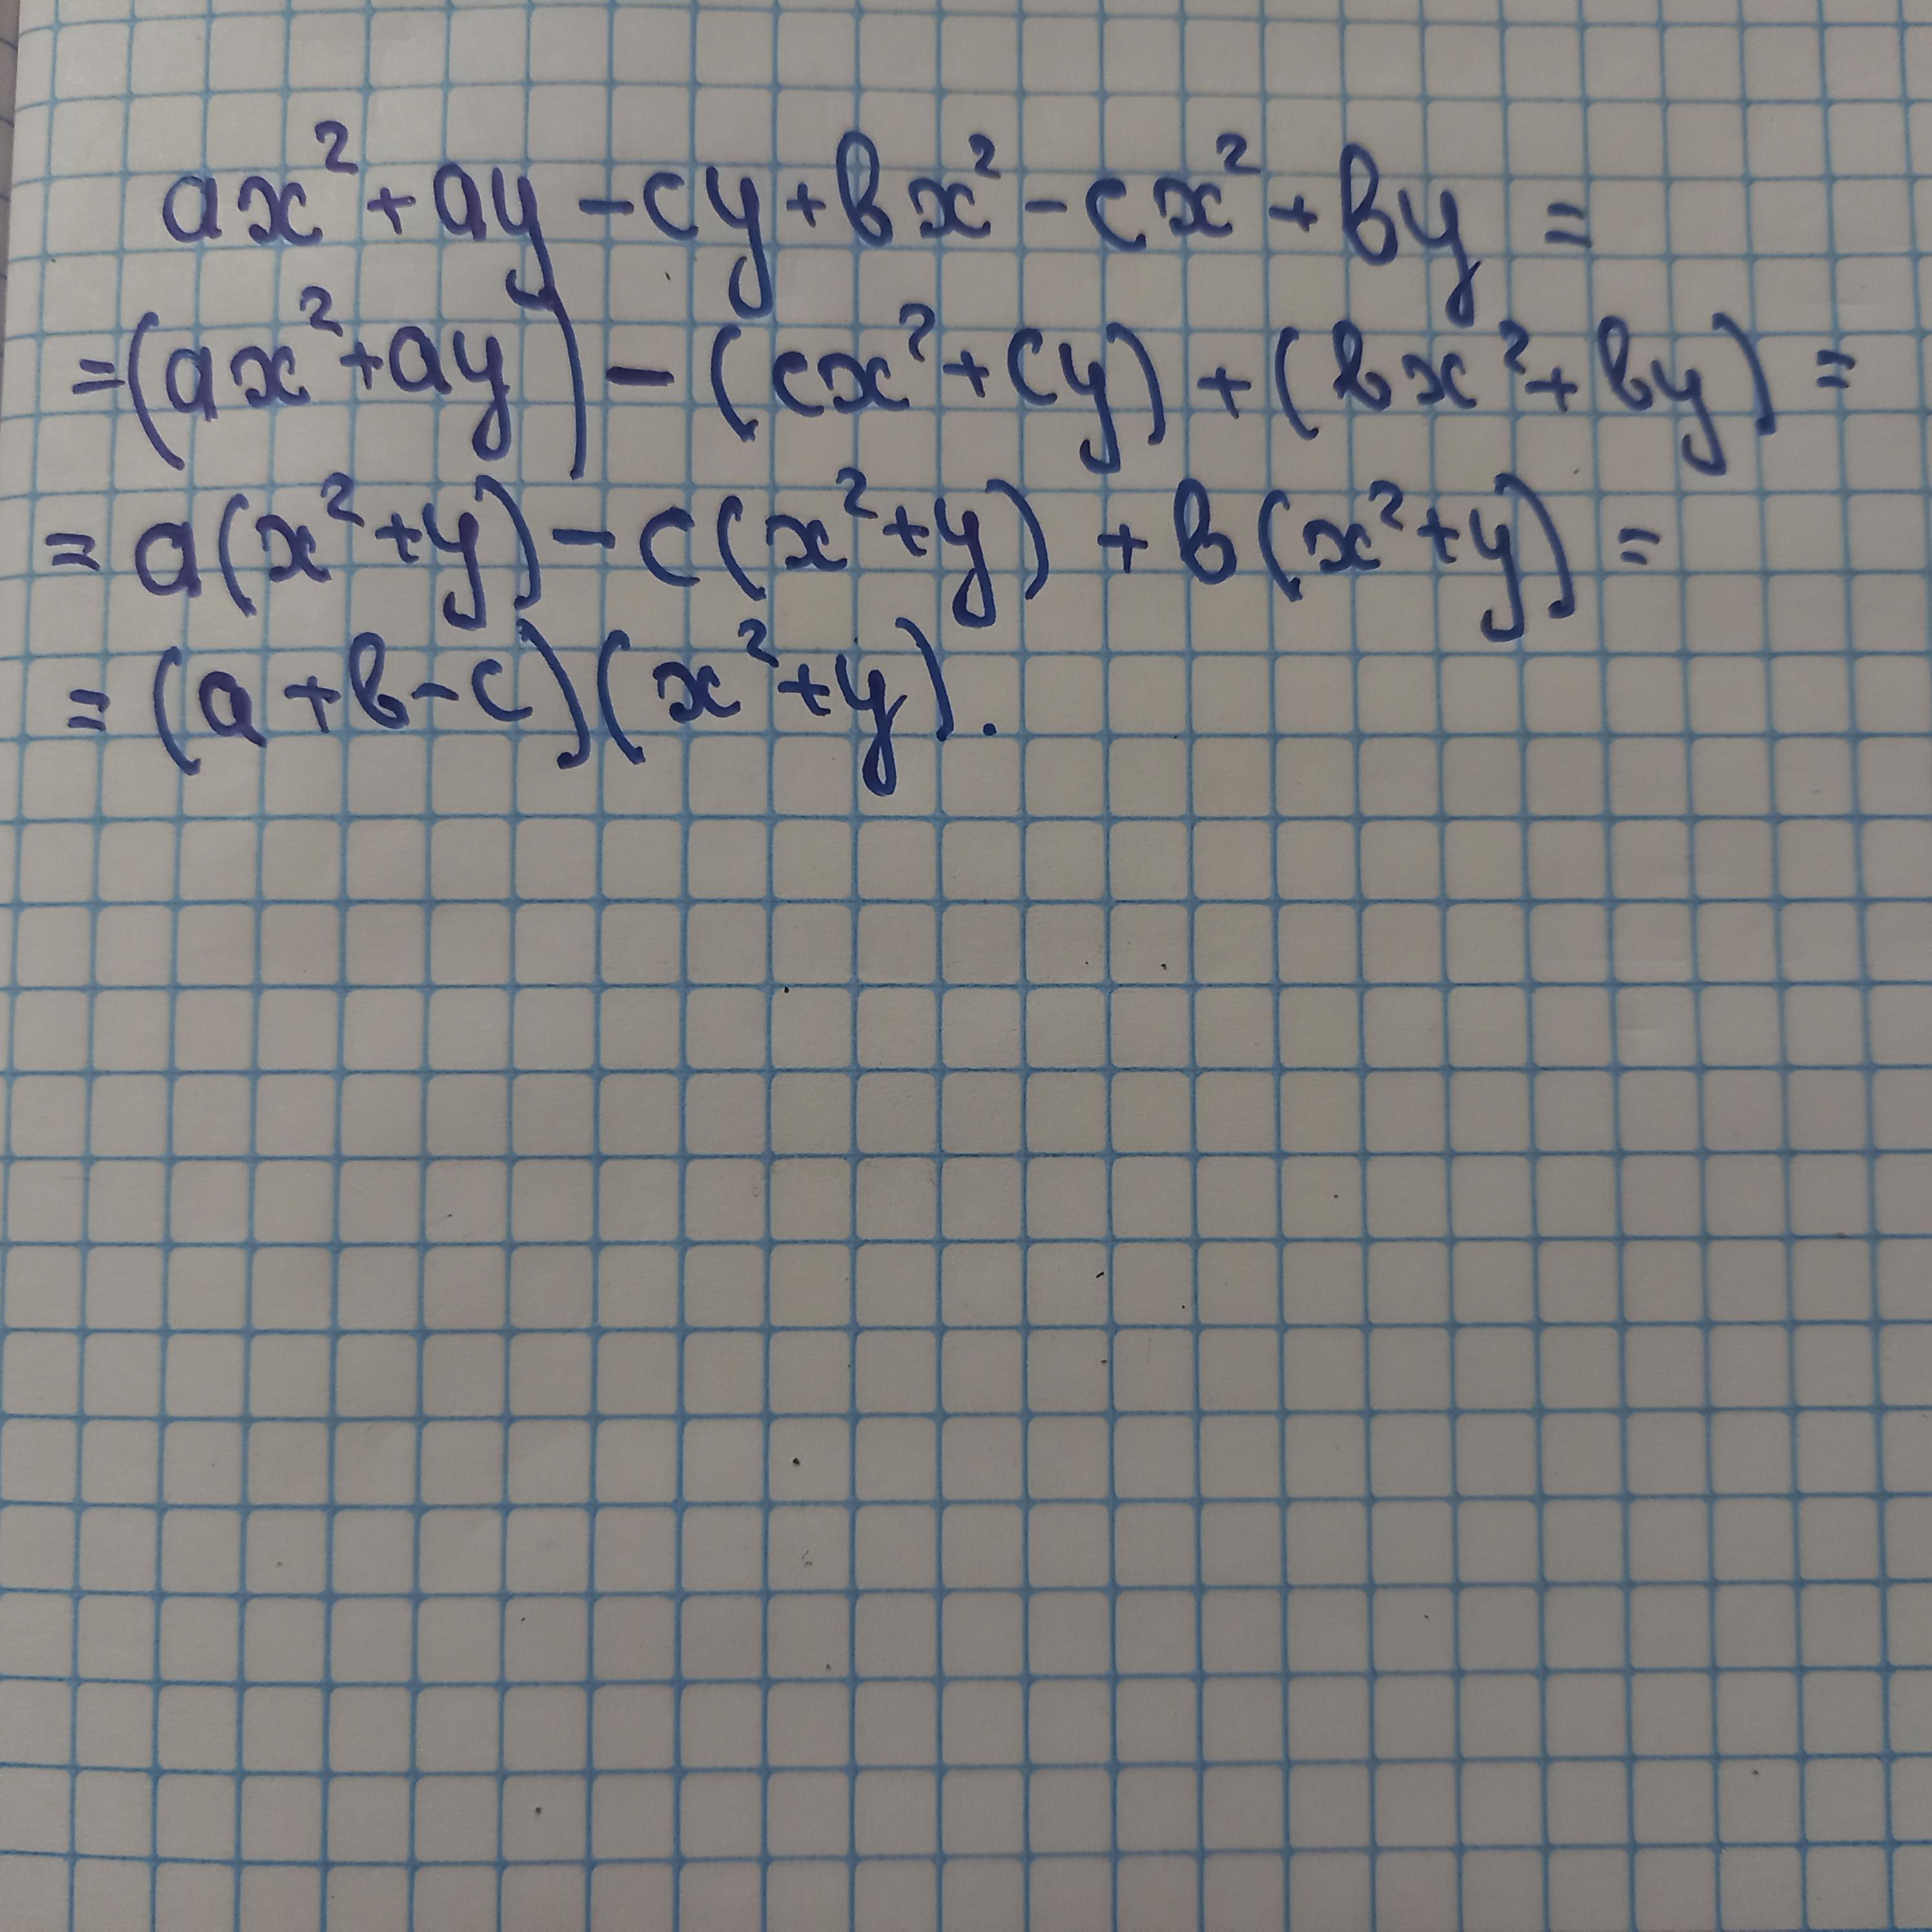 ax² + ay - cy + bx² - cx² + by =
= (ax² + ay) - (cx² + cy) + (bx² + by) =
= a(x² + y) - c(x² + y) + b(x² + y) =
= (a + b - c)(x² + y).